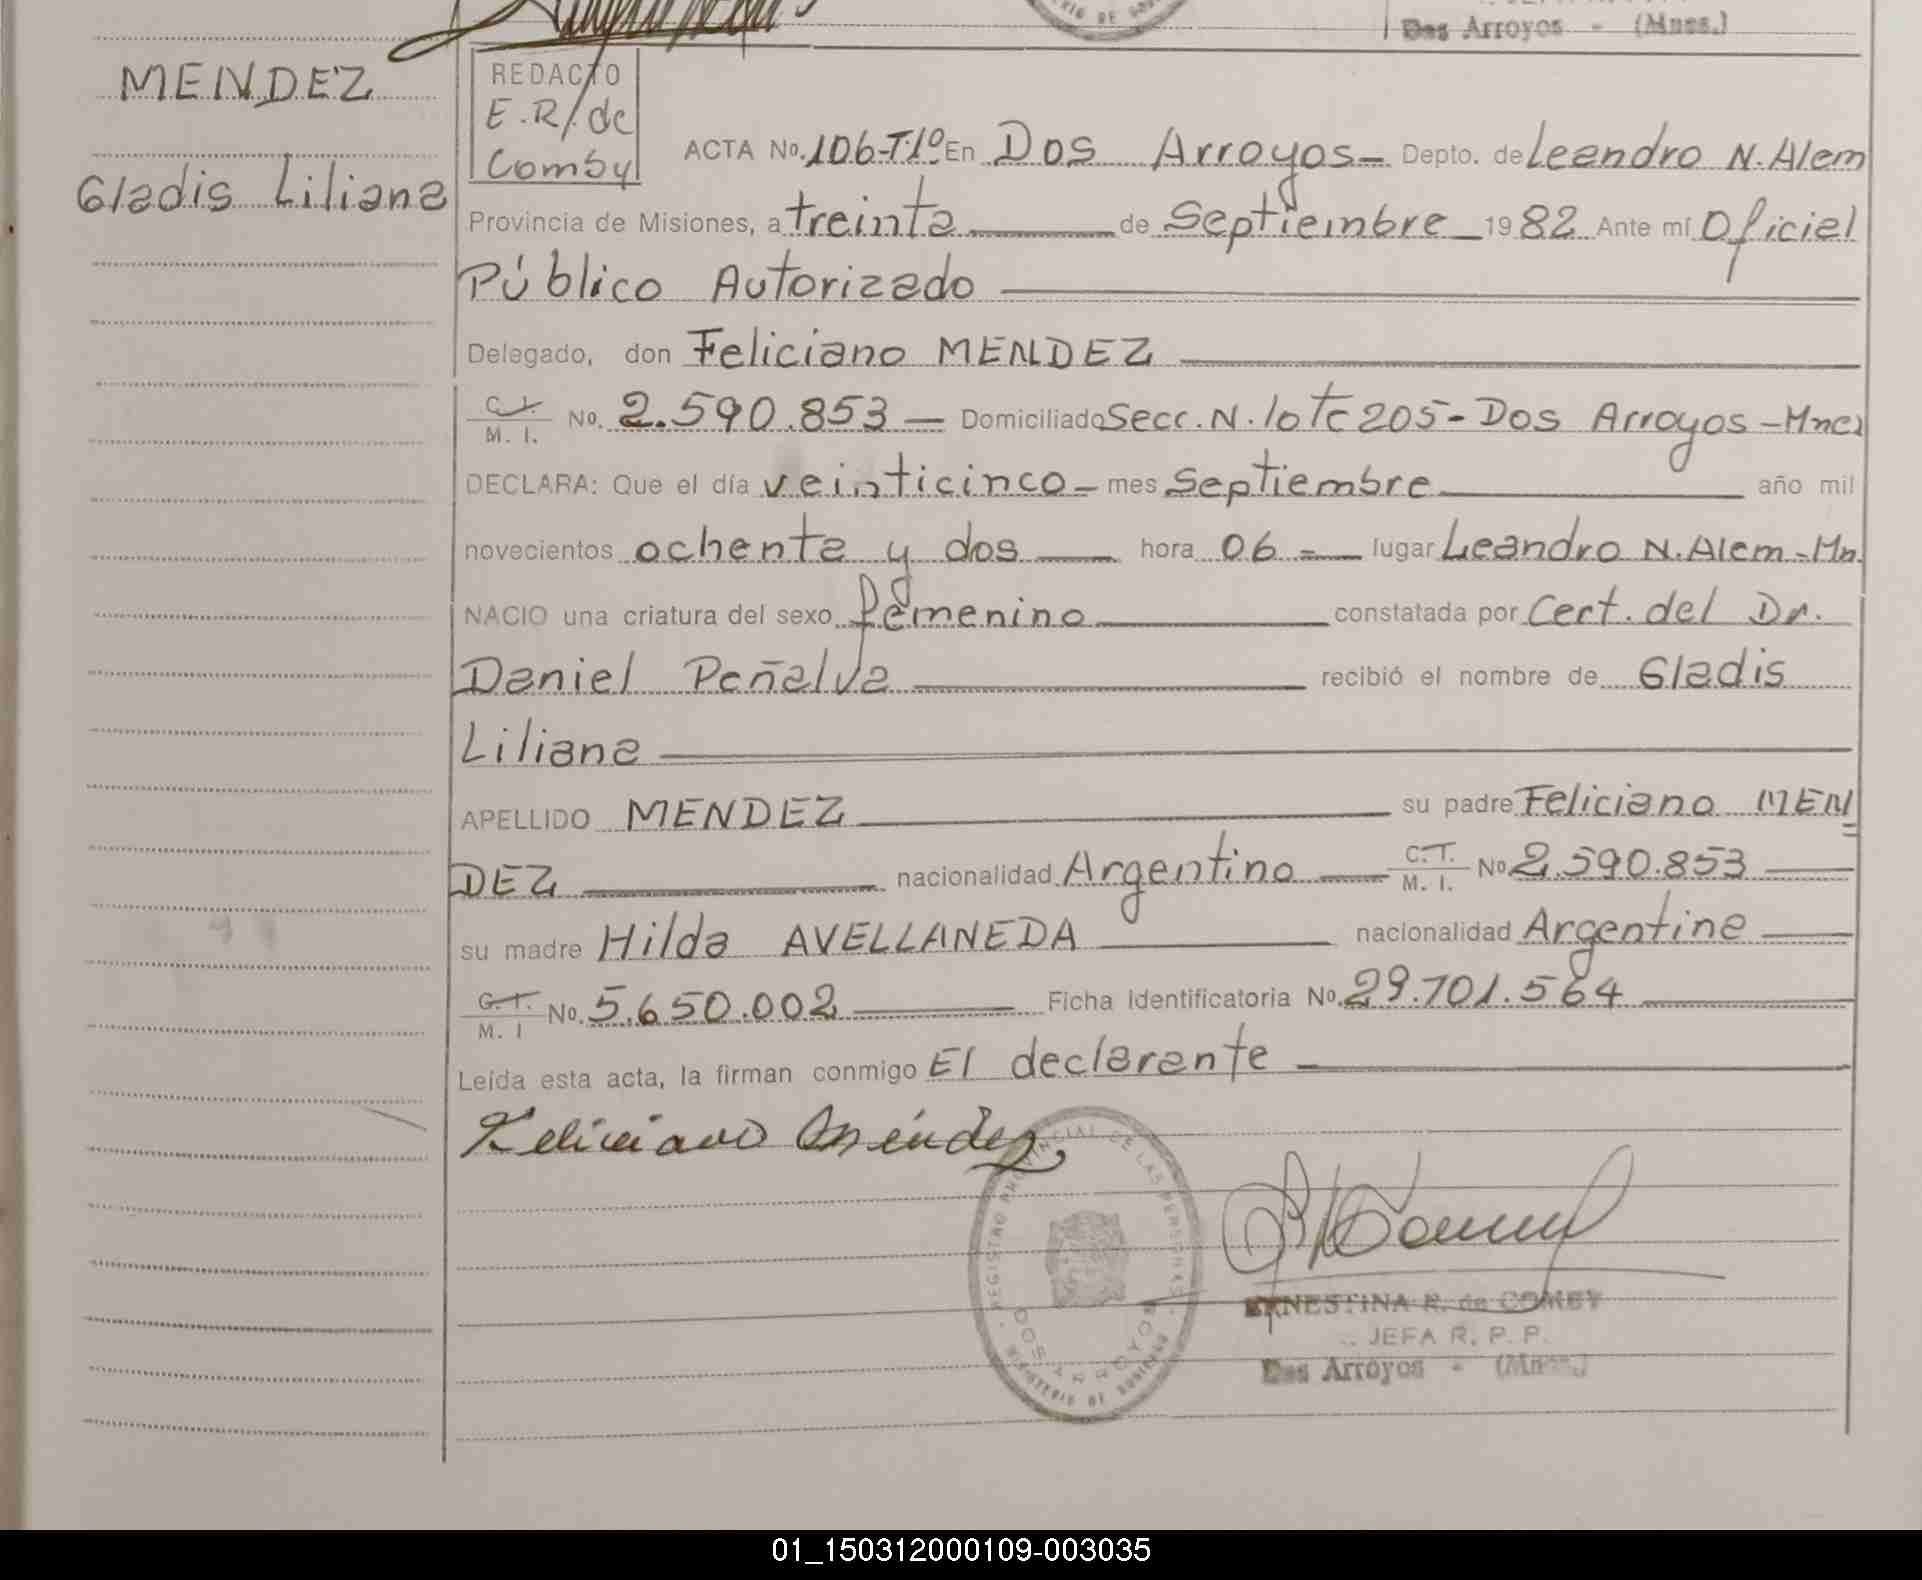 Dos Arroyos - (Mnes.)
MENDEZ
Gladis Liliana
REDACTO
E.R. de
Comby
ACTA No. 106-T1º En Dos Arroyos - Depto. de Leandro N. Alem
Provincia de Misiones, a treinta de Septiembre 1982 Ante mí Oficial
Público Autorizado
Delegado, don Feliciano MENDEZ
C. I. M. I. No. 2.590.853 - Domiciliado Secc. N. lote 205 - Dos Arroyos - Mnes
DECLARA: Que el día veinticinco - mes Septiembre año mil
novecientos ochenta y dos hora 06 = lugar Leandro N. Alem - Mn.
NACIO una criatura del sexo femenino constatada por Cert. del Dr.
Daniel Peñalva recibió el nombre de Gladis
Liliana
APELLIDO MENDEZ su padre Feliciano MEN
DEZ nacionalidad Argentino C. I. M. I. No 2.590.853
su madre Hilda AVELLANEDA nacionalidad Argentina
C. I. M. I No. 5.650.002 Ficha identificatoria No. 29.701.564
Leída esta acta, la firman conmigo El declarante
Feliciano Méndez
REGISTRO PROVINCIAL DE LAS PERSONAS
DOS ARROYOS
MINISTERIO DE GOBIERNO
ERNESTINA R. de COMBY
JEFA R. P. P.
Dos Arroyos - (Mnes.)
01_150312000109-003035